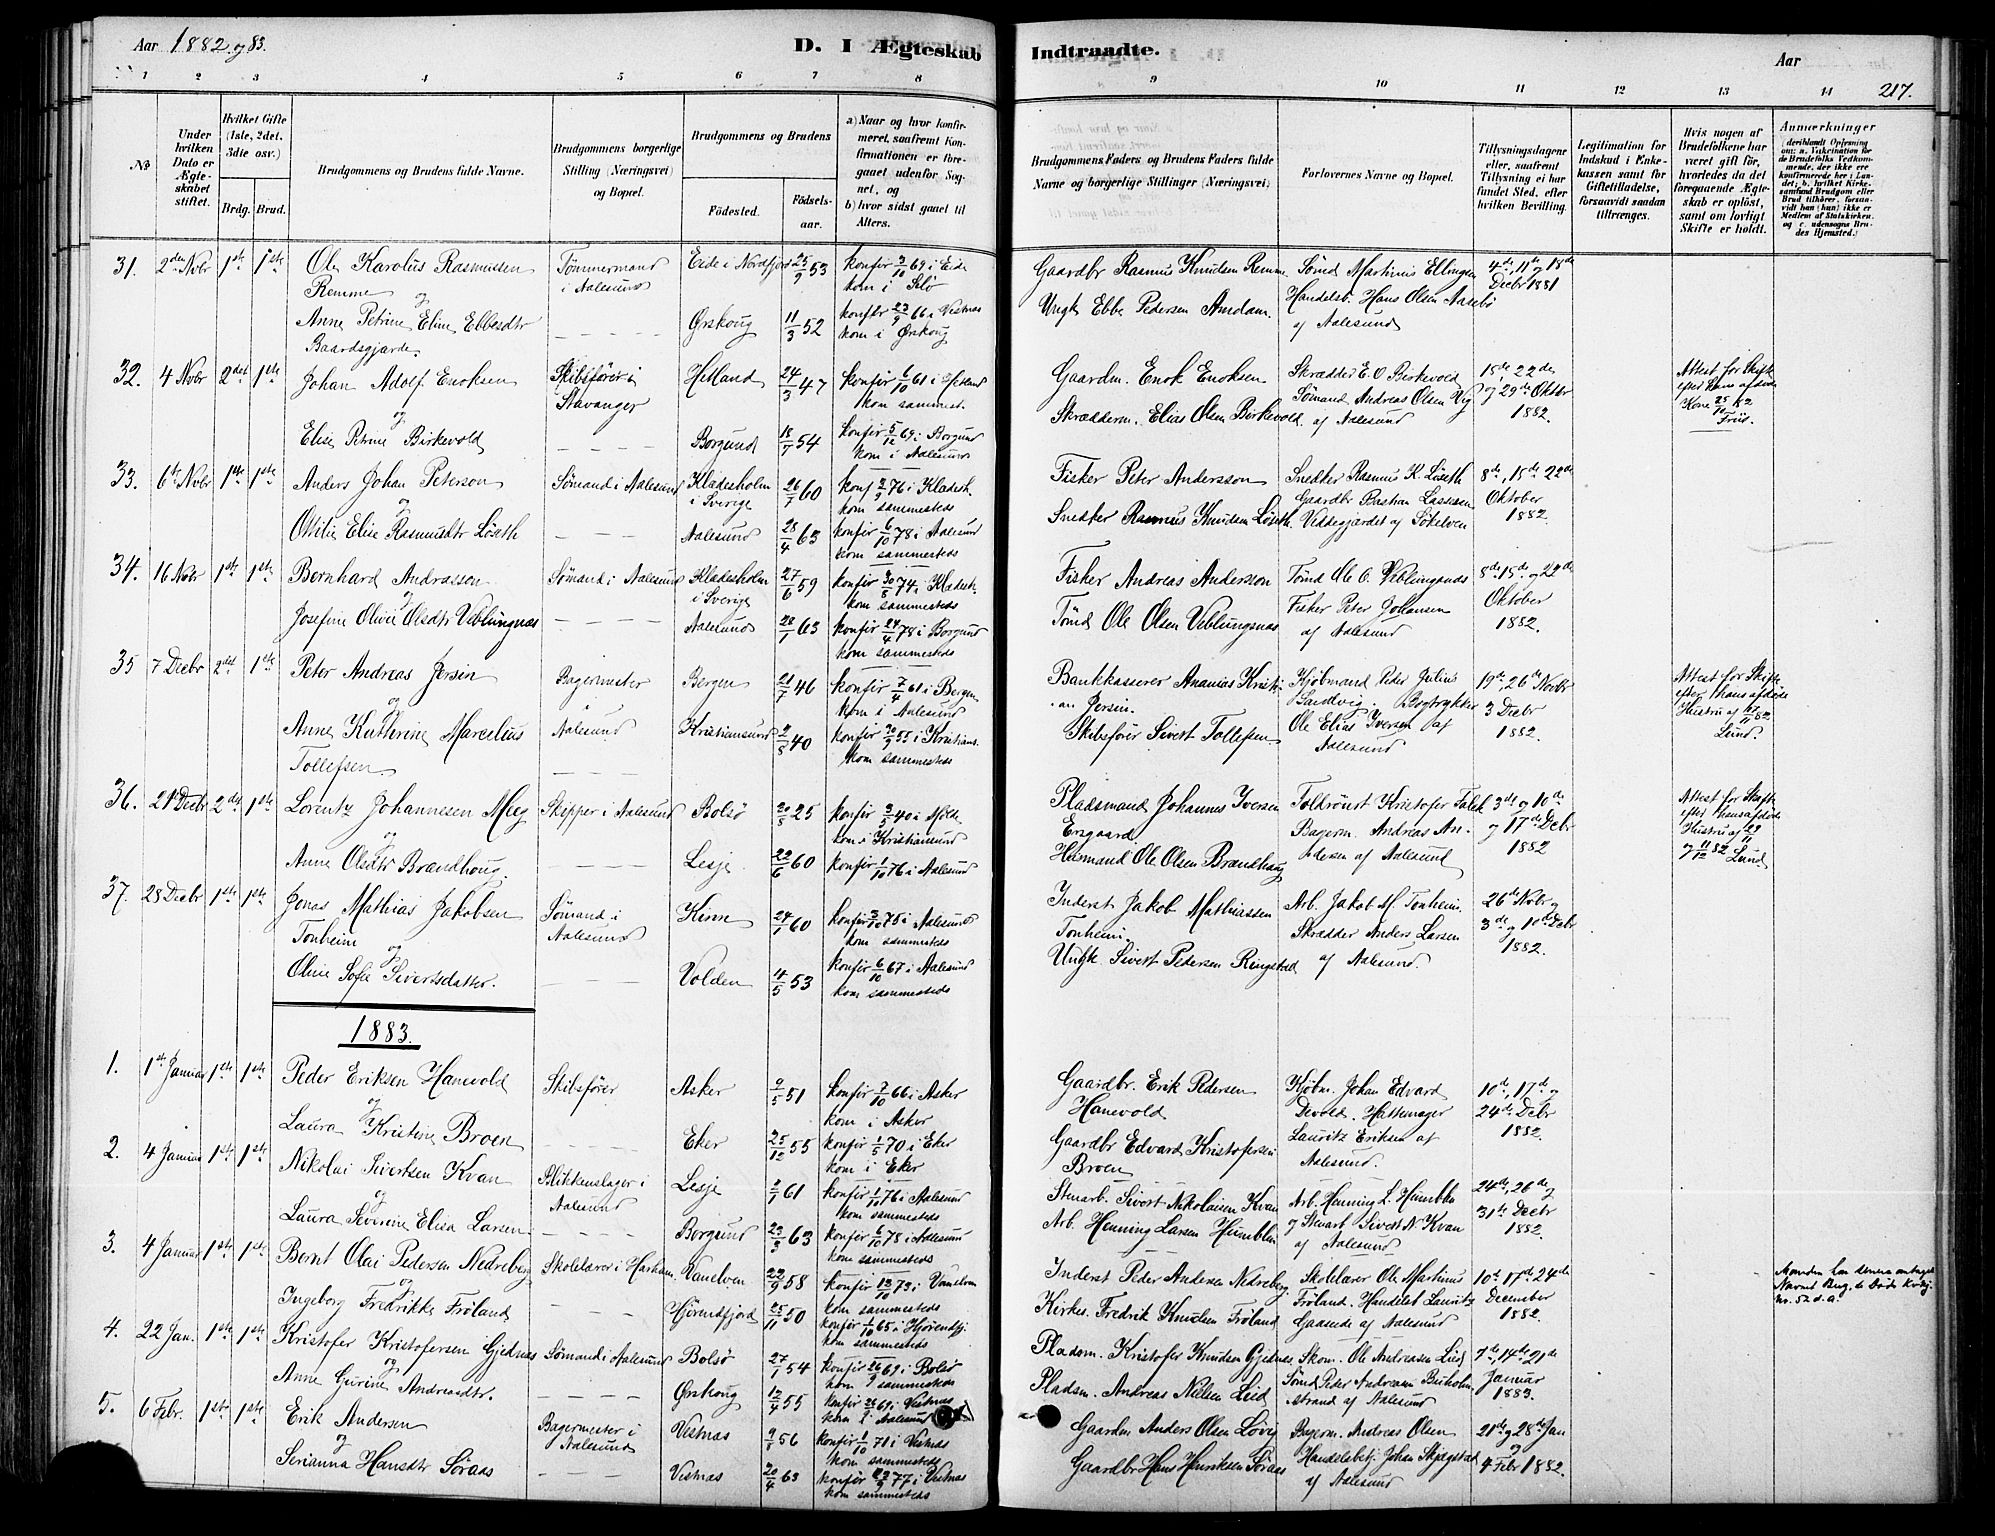 Aar 1882 og 83.
D. I Ægteskab
Indtraadte.
Aar
217.
1 2 3 4 5 6 7 8 9 10 11 12 13 14
No
Under hvilken Dato er Ægteskabet stiftet.
Hvilket Gifte (1ste, 2det, 3die osv.)
Brdg. Brud.
Brudgommens og Brudens fulde Navne.
Brudgommens borgerlige Stilling (Næringsvei) og Bopæl.
Brudgommens og Brudens
Fødested.
Fødselsaar.
a) Naar og hvor konfirmeret, saafremt Konfirmationen er foregaaet udenfor Sognet, og
b) hvor sidst gaaet til Alters.
Brudgommens Faders og Brudens Faders fulde Navne og borgerlige Stillinger (Næringsvei)
Forlovernes Navne og Bopæl.
Tillysningsdagene eller, saafremt Tillysning ei har fundet Sted, efter hvilken Bevilling.
Legitimation for Indskud i Enkekassen samt for Giftetilladelse, forsaavidt saadan tiltrænges.
Hvis nogen af Brudefolkene har været gift før, hvorledes da det foregaaende Ægteskab er opløst, samt om lovligt Skifte er holdt.
Anmærkninger
31. 2den Novbr 1ste 1ste Ole Karolus Rasmussen Remme Tømmermand i Aalesund Eide i Nordfjord 25/9 53 konfir 3/10 69 i Eide kom i Selø Gaardbr Rasmus Knudsen Remme Sømd Martinus Ellingsen 4de, 11te og 18de Decbr 1881
og
Anne Petrine Eline Ebbesdtr Baardsgjærde. Ørskoug 11/3 52 konfir 23/9 66 i Vestnæs kom i Ørskoug Ungk Ebbe Pedersen Amdam. Handelsb. Hans Olsen Aasebø af Aalesund
32. 4 Novbr 2det 1ste Johan Adolf Enoksen Skibsfører i Stavanger Hetland 24/3 47 konfir 6/10 61 i Hetland kom sammest. Gaardm. Enok Enoksen Skrædder E. O Birkevold 15de 22de og 29de Oktbr 1882. Attest for Skifte efter hans afdøde Kone 25/10 82 Friis.
og
Elise Petrine Birkevold Borgund 18/7 54 konfir 5/12 69 i Borgund kom i Aalesund Skrædderm. Elias Olsen Birkevold Sømand Andreas Olsen Vig af Aalesund
33. 6te Novbr 1ste 1ste Anders Johan Peterson Sømand i Aalesund Kladesholm i Sverige 26/7 60 konf 2/9 76 i Kladesh. kom sammesteds Fisker Peter Andersson Snedker Rasmus K. Løseth 8de, 15de 22de Oktober 1882.
og
Ottilie Elise Rasmusdtr Løseth Aalesund 28/4 63 konfir 6/10 78 i Aalesund kom sammesteds Snedker Rasmus Knudsen Løseth. Gaardbr Bastian Lassesen Viddegjærdet af Søkelven
34. 16 Novbr 1ste 1ste Bernhard Andrasson Sømand i Aalesund Kladesholm i Sverige 27/6 59 konfir 30/8 74 i Kladesh. kom sammesteds Fisker Andreas Anderson Tømd Ole O. Veblungsnæs 8de 15de og 22de Oktober 1882.
og
Josefine Olivie Olsdtr Veblungnæs Aalesund 28/1 63 konfir 24/4 78 i Borgund kom sammesteds Tømd Ole Olsen Veblungsnæs Fisker Peter Johansen af Aalesund
35 7 Decbr 2det 1ste Peter Andreas Jersin Bagermester Aalesund Bergen 21/7 46 konfir 7/4 61 i Bergen kom i Aalesund Bankkasserer Ananias Kristian Jersin. Kjøbmand Peder Julius Sandvig. 19de, 26de Novbr 3 Decbr 1882. Attest for Skifte efter hans afdøde Hustru af 82 Lund.
og
Anne Kathrine Marcelius Tollefsen Kristiansund 2/8 40 konfir 30/9 55 i Kristians. kom sammesteds Skibsfører Sivert Tollefsen Bogtrykker Ole Elias Iversen af Aalesund
36. 21 Decbr 2det 1ste Lorentz Johannesen Meeg Skipper i Aalesund Bolsø 20/8 25 konfir 3/5 40 i Molde kom i Kristiansund Pladsmand Johannes Iversen Ersgaard Toldrorst Kristofer Falck 3de og 10de og 17de Decbr 1882 Attest for Skifte efter hans afdøde Hustru af 29/11 og 11/12 82 Lund
og
Anne Olsdtr Brandhoug. Lesje 22/6 60 konfir 1/10 76 i Aalesund Husmand Ole Olsen Brandhoug Bagerm. Andreas Andesen af Aalesund
37. 28 Decbr 1ste 1ste Jonas Mathias Jakobsen Tonheim Sømand i Aalesund Kinn 24/1 60 konfir 3/10 75 i Aalesund kom sammesteds Inderst Jakob Mathiassen Tonheim. Arb. Jakob M. Tonheim. 26de Novbr og 3de og 10de Decbr 1882.
og
Oline Sofie Sivertsdatter. Volden 4/5 53 konfir 6/10 67 i Aalesund kom sammesteds Ungk Sivert Pedersen Ringstad Skrædder Anders Larsen af Aalesund.
1883.
1. 1ste Januar 1ste 1ste Peder Eriksen Hanevold Skibsfører Asker 9/5 51 konfir 7/10 66 i Asker kom i Asker Gaardbr. Erik Pedersen Hanevold Kjøbm. Johan Edvard Devold. 10de, 17de og 24de Decbr 1882.
og
Laura Kristine Broen Eker 25/12 55 konfir 1/5 70 i Eker kom i Eker Gaardbr Edvard Kristofersen Broen Hattemager Lauritz Eriksen af Aalesund.
2. 4 Januar 1ste 1ste Nikolai Sivertsen Kvam Blikkenslager i Aalesund Lesje 2/7 61 konfir 1/10 76 i Aalesund kom sammesteds Stenarb. Sivert Nikolaisen Kvam Arb. Henning L. Humblen 24de, 26de og 31te Decbr 1882.
og
Laura Severine Elisa Larsen Borgund 23/3 63 konfir 6/10 78 i Aalesund kom sammesteds Arb. Henning Larsen Humblen og Stenarb Sivert N. Kvam af Aalesund
3. 4 Januar 1ste 1ste Bernt Olai Pedersen Nedreberg Skolelærer i Harham. Vanelven 22/9 58 konfir 13/10 73 i Vanelven kom sammesteds Inderst Peder Andersen Nedreberg Skolelærer Ole Martinus Frøland. 10de 17de 24de December 1882.
og
Ingeborg Fredrikke Frøland Hjørendfjord 25/11 50 konfir 1/10 65 i Hjørendfj. kom sammesteds Kirkes. Fredrik Knudsen Frøland Handelsb Lauritz Gaaseide af Aalesund
4. 22 Jan. 1ste 1ste Kristofer Kristofersen Gjednæs Sømand i Aalesund Bolsø 27/7 54 konfir 26/9 69 i Bolsø kom sammesteds Pladsm. Kristofer Knudsen Gjednæs. Skom. Ole Andreassen Lied 7de, 14de 21de Januar 1883.
og
Anne Gurine Andreasdtr. Ørskoug 12/4 55 konfir 26/9 69 i Vestnæs kom i Aalesund Pladsm. Andreas Nielsen Leid Sømd Peter Andreassen Buholm strand af Aalesund
5. 6 Febr. 1ste 1ste Erik Andersen Bagermester i Aalesund Vestnæs 9/8 56 konfir 1/10 71 i Vestnæs kom sammesteds Gaardm Anders Olsen Løvig Bagerm. Andreas Olsen 21de og 28de Jan og 4 Febr 1882.
og
Serianna Hansdtr Søraas Vestnæs 20/4 63 konfir 23/9 77 i Vestnæs kom sammesteds Gaardbr Hans Henriksen Søraas Handelsbetj. Johan Skjegstad af Aalesund